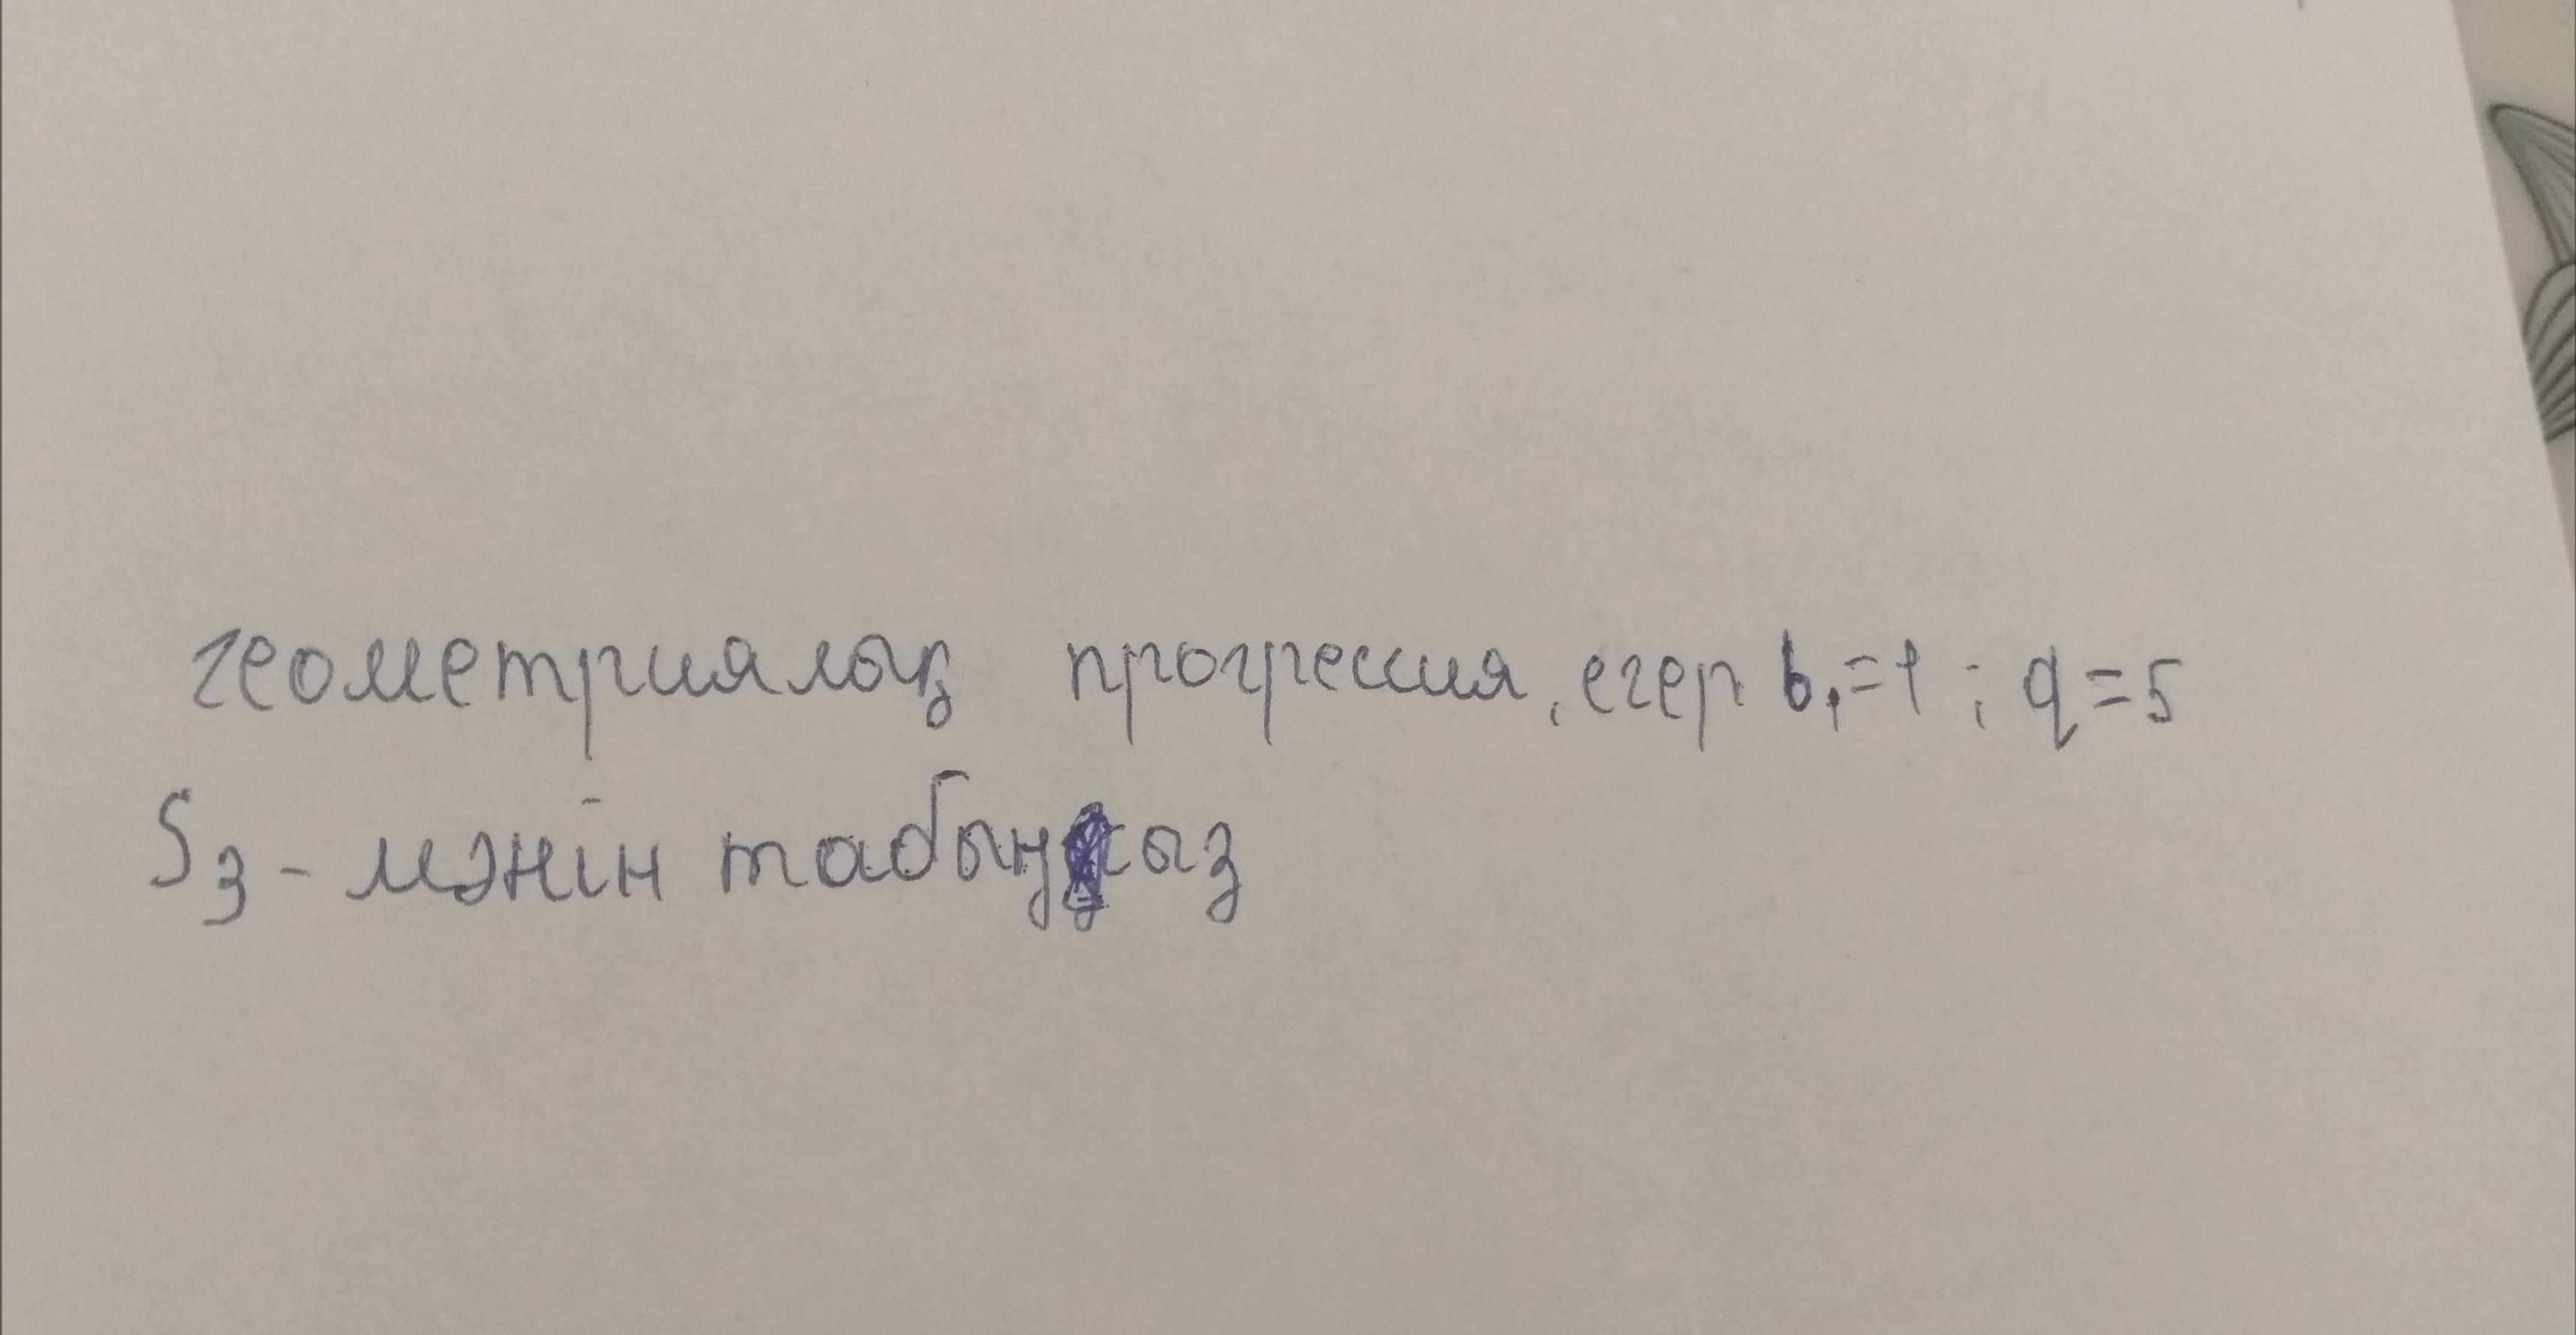 геометриялық прогрессия, егер b₁=1; q=5
S₃-мәнін табыңыз